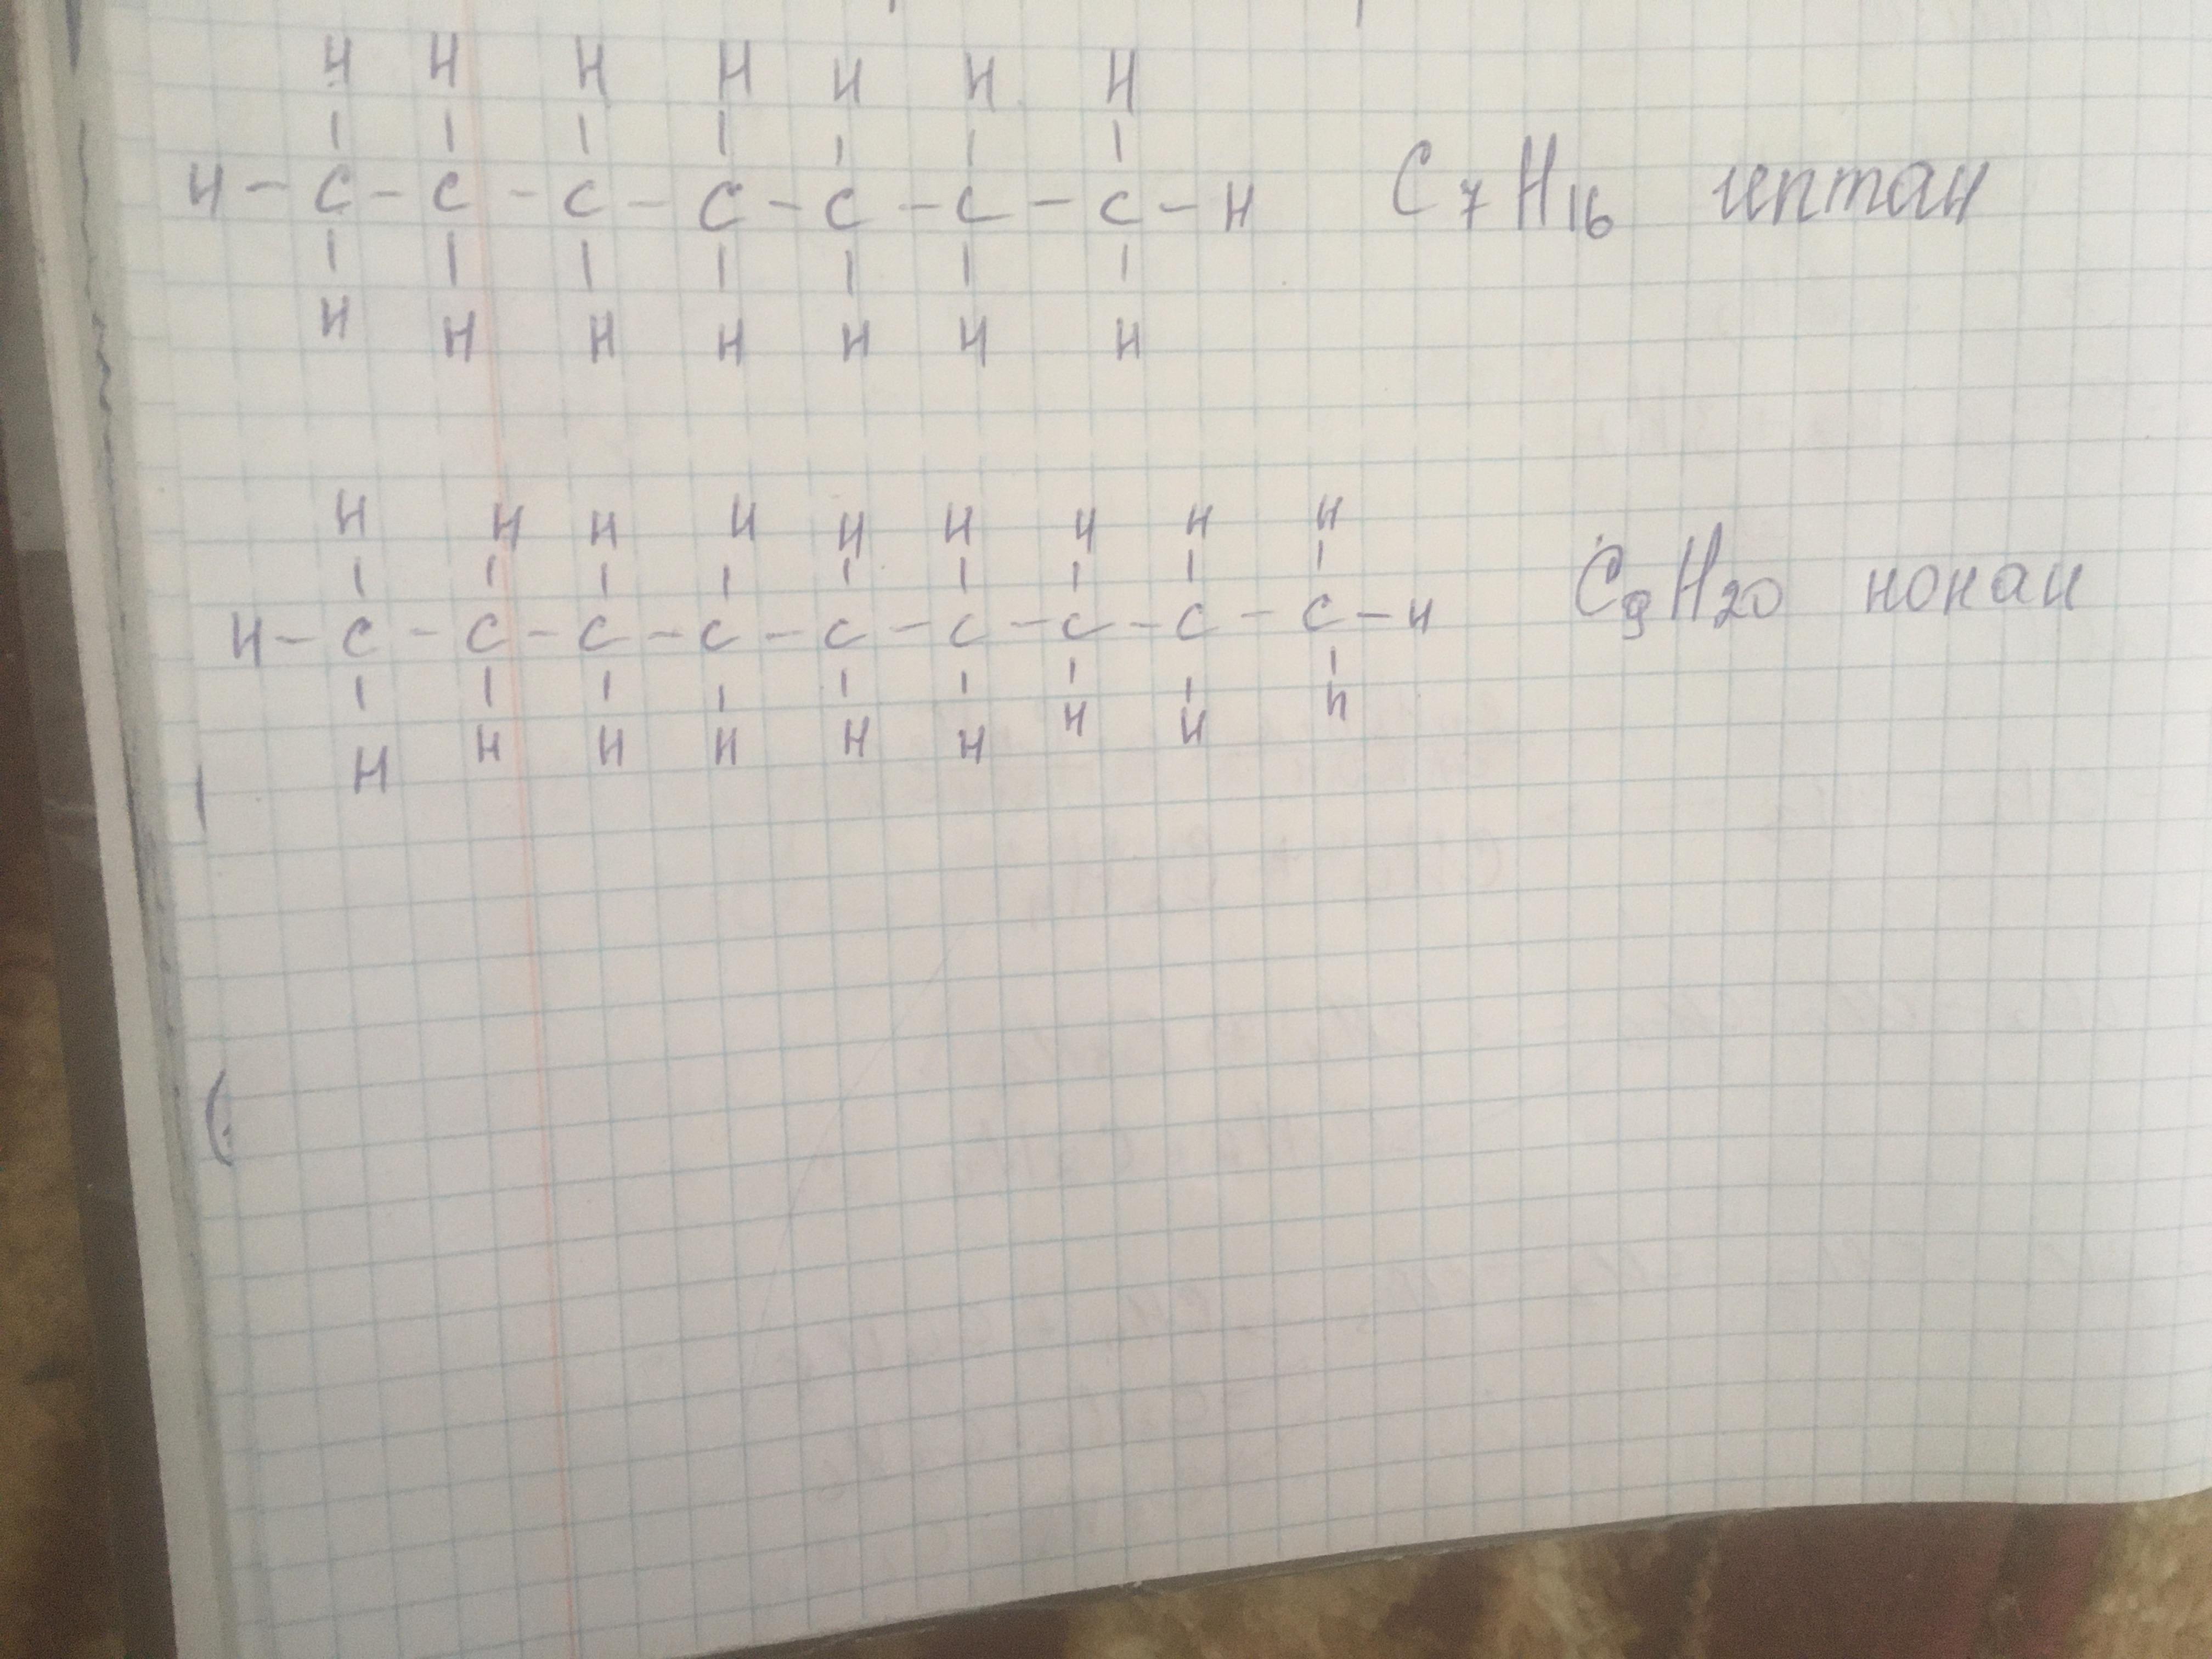 H H H H H H H
| | | | | | |
H - C - C - C - C - C - C - C - H C₇H₁₆ гептан
| | | | | | |
H H H H H H H
H H H H H H H H H
| | | | | | | | |
H - C - C - C - C - C - C - C - C - C - H C₉H₂₀ нонан
| | | | | | | | |
H H H H H H H H H